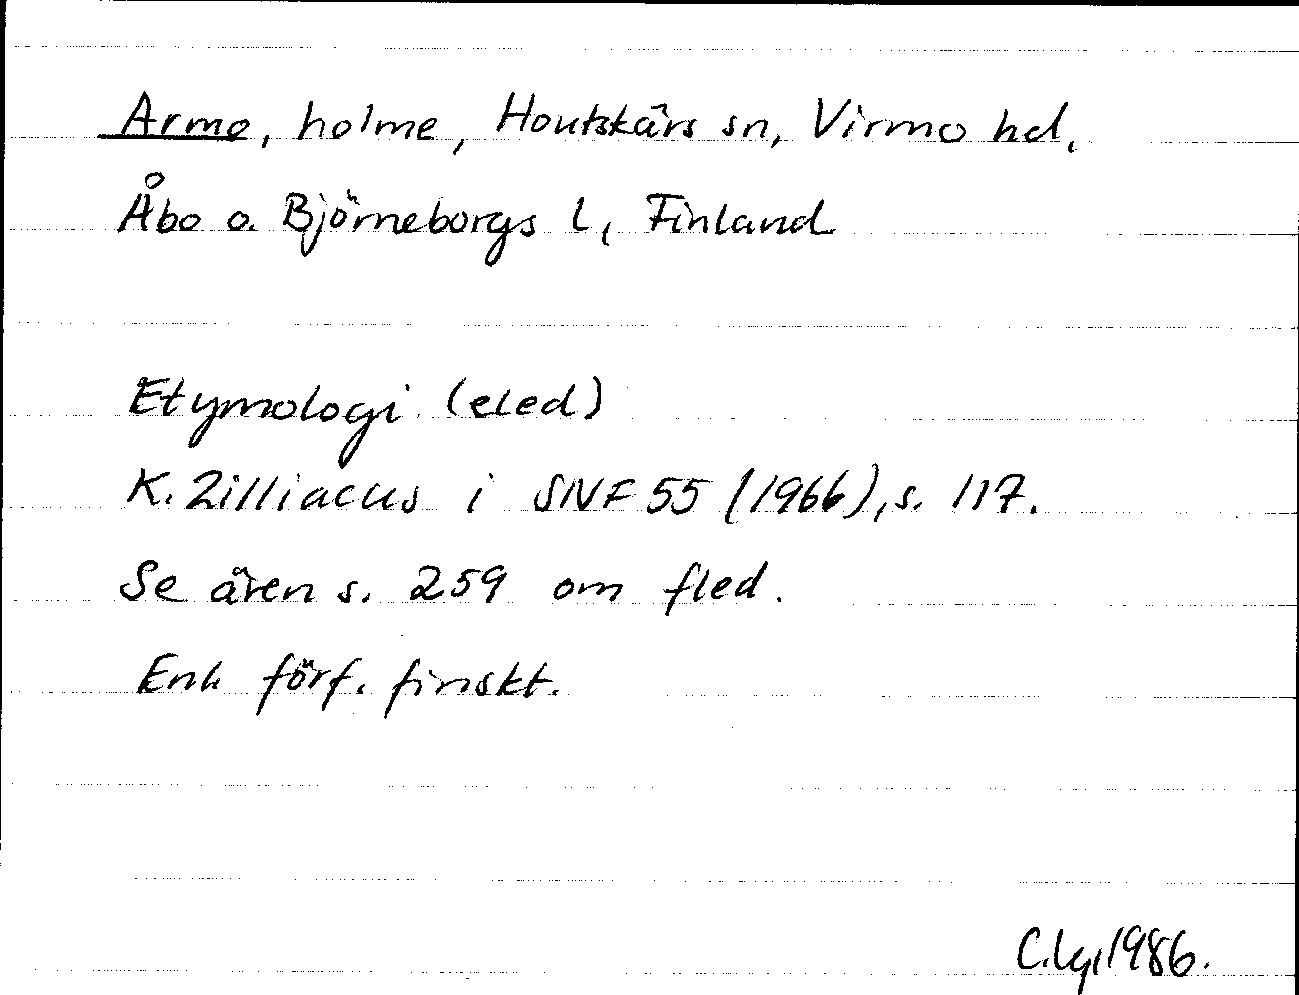 Armo, holme, Houtskärs sn, Virmo hd,
Åbo o. Björneborgs l, Finland
Etymologi (eled)
K. Zilliacus i SNF 55 (1966), s. 117.
Se även s. 259 om fled.
Enl. förf. finskt.
C.Lg, 1986.